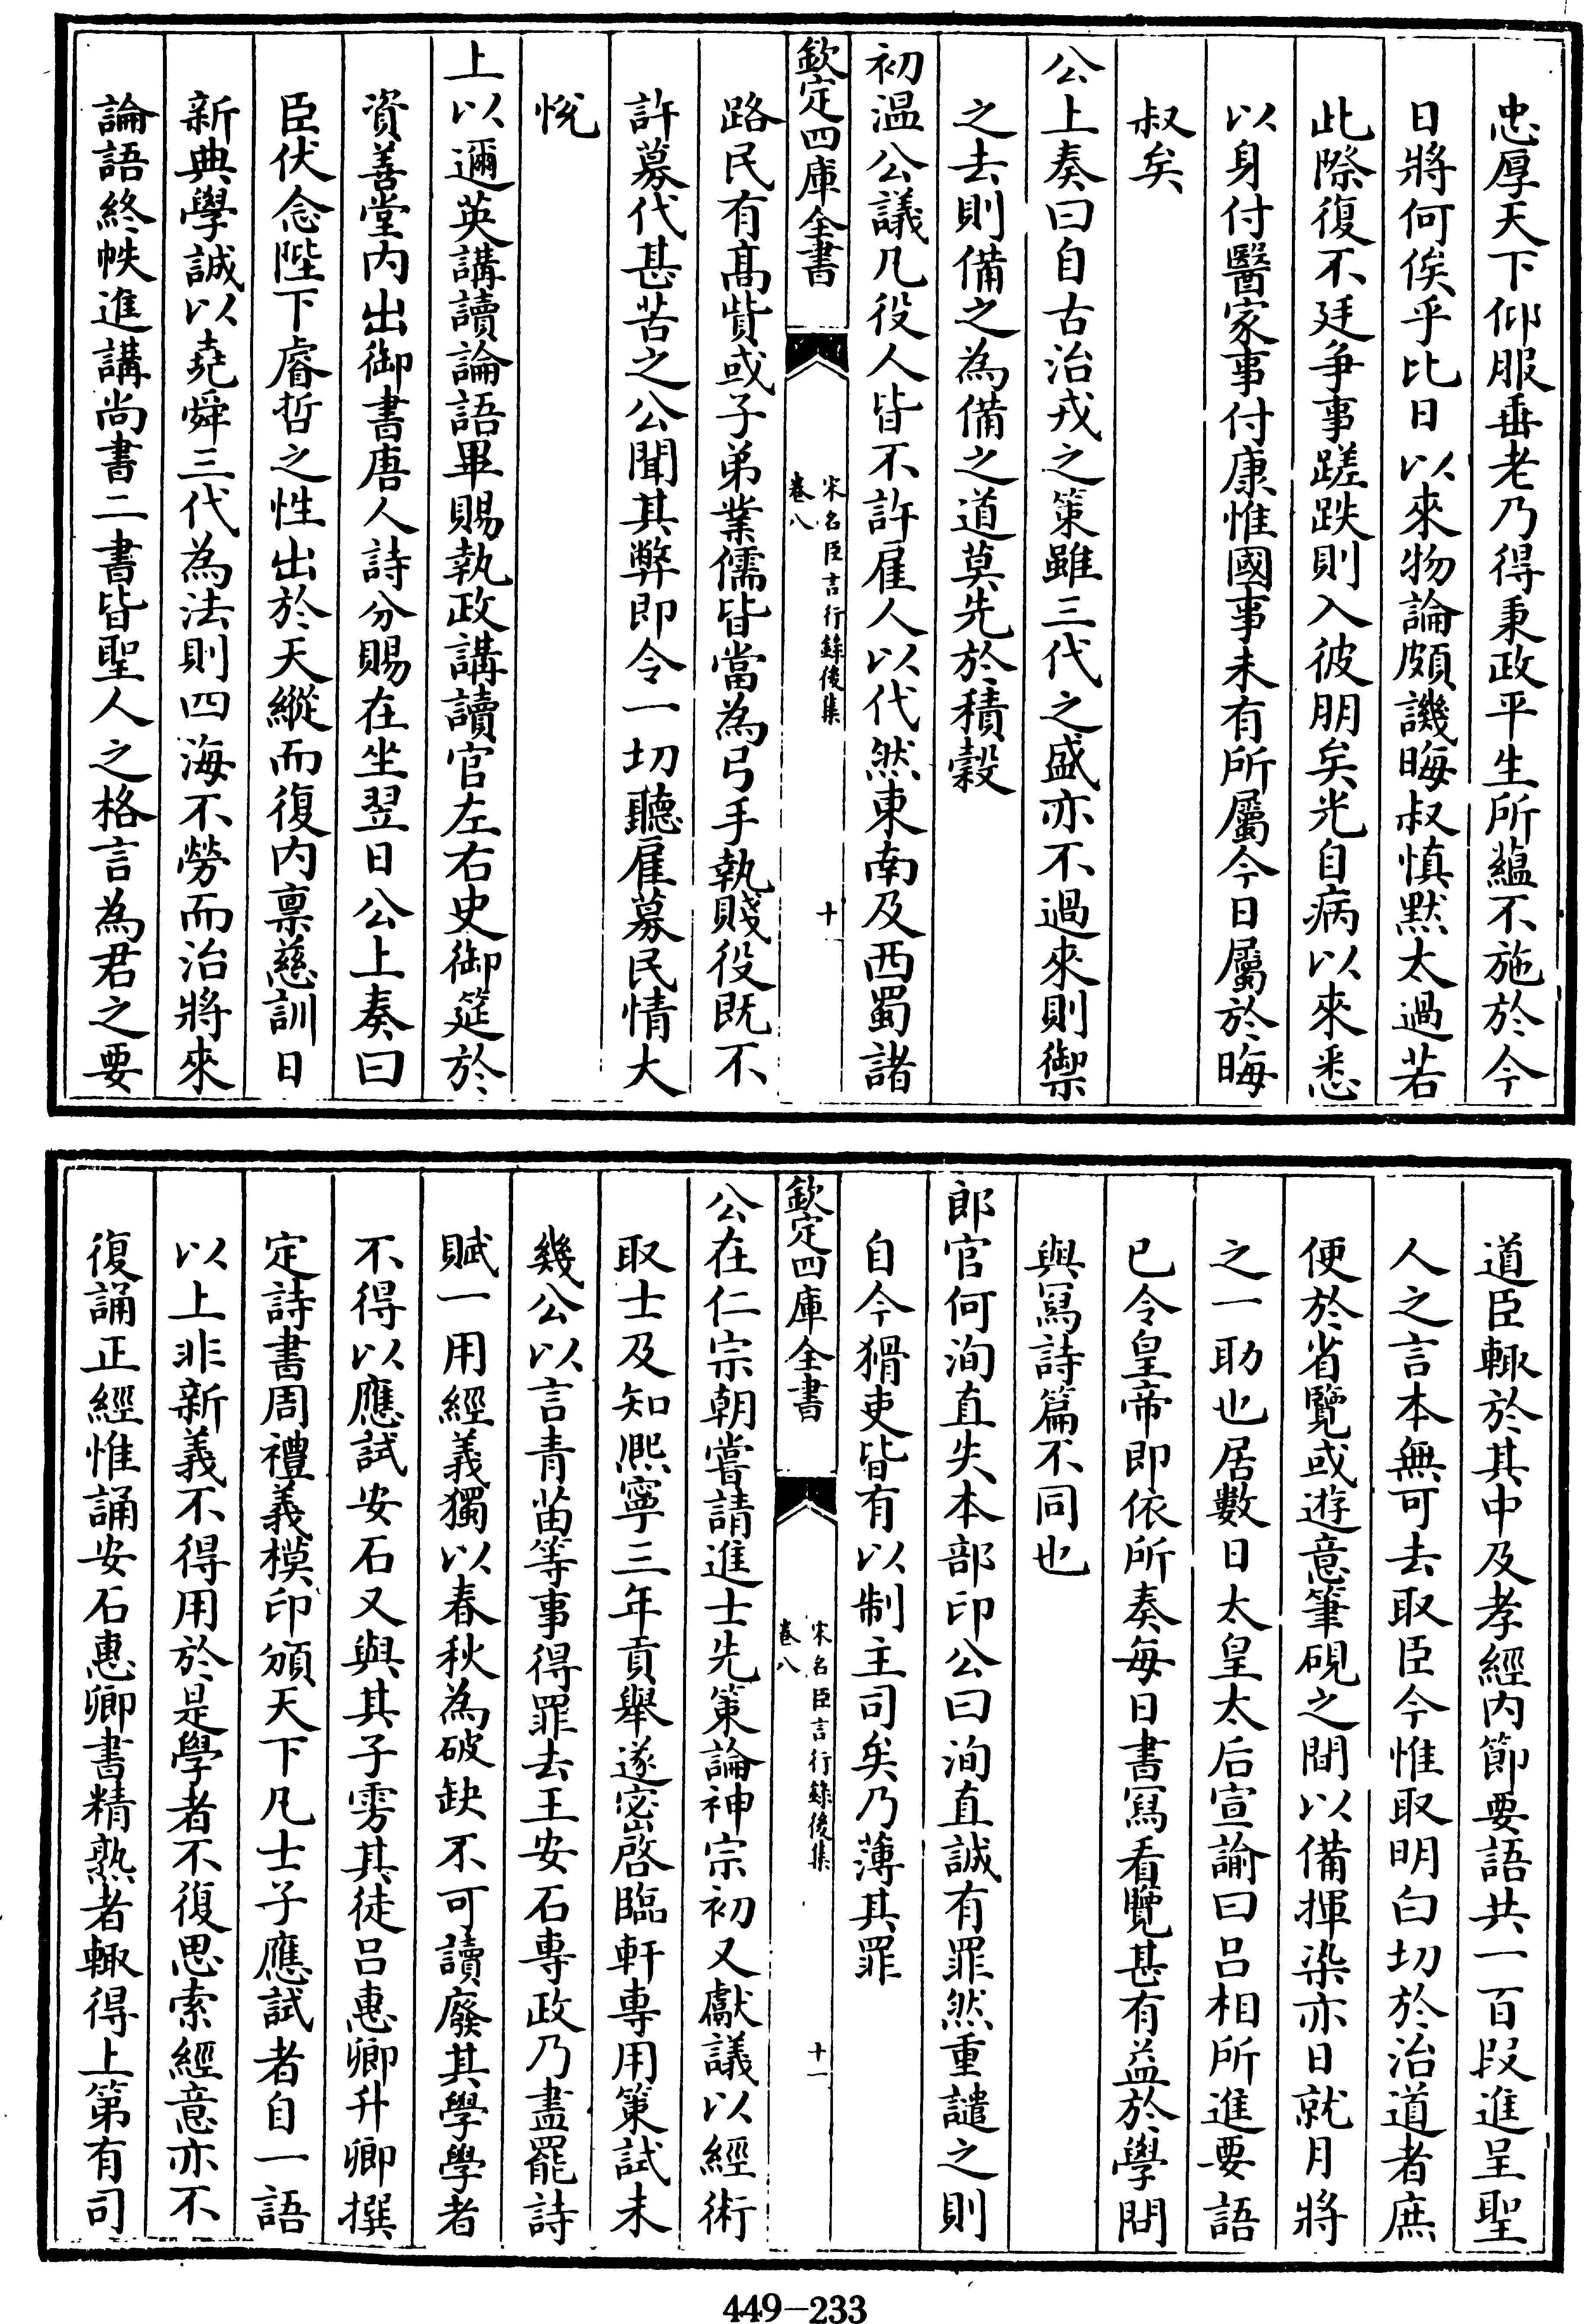 忠厚天下仰服垂老乃得秉政平生所蘊不施於今
日將何俟乎比日以來物論頗譏晦叔慎默太過若
此際復不廷爭事蹉跌則入彼朋矣光自病以來悉
以身付醫家事付康惟國事未有所屬今日屬於晦
叔矣
公上奏曰自古治戎之策雖三代之盛亦不過來則禦
之去則備之為備之道莫先於積穀
初温公議凡役人皆不許雇人以代然東南及西蜀諸
欽定四庫全書
宋名臣言行録後集
卷八
十
路民有髙貲或子弟業儒皆當為弓手執賤役既不
許募代甚苦之公聞其弊即令一切聽雇募民情大
悅
上以邇英講讀論語畢賜執政講讀官左右史御筵於
資善堂內出御書唐人詩分賜在坐翌日公上奏曰
臣伏念陛下睿哲之性出於天縱而復内禀慈訓日
新典學誠以堯舜三代為法則四海不勞而治將來
論語終帙進講尚書二書皆聖人之格言為君之要
道臣輙於其中及孝經内節要語共一百段進呈聖
人之言本無可去取臣今惟取明白切於治道者庶
便於省覽或遊意筆硯之間以備揮染亦日就月將
之一助也居數日太皇太后宣諭曰吕相所進要語
已令皇帝即依所奏每日書寫看覽甚有益於學問
與寫詩篇不同也
郎官何洵直失本部印公曰洵直誠有罪然重譴之則
自今猾吏皆有以制主司矣乃薄其罪
欽定四庫全書
宋名臣言行録後集
卷八
十一
公在仁宗朝嘗請進士先策論神宗初又獻議以經術
取士及知熈寧三年貢舉遂密啓臨軒專用策試未
幾公以言青苗等事得罪去王安石專政乃盡罷詩
賦一用經義獨以春秋為破缺不可讀廢其學學者
不得以應試安石又與其子雱其徒吕惠卿升卿撰
定詩書周禮義模印頒天下凡士子應試者自一語
以上非新義不得用於是學者不復思索經意亦不
復誦正經惟誦安石惠卿書精熟者輙得上第有司
449—233